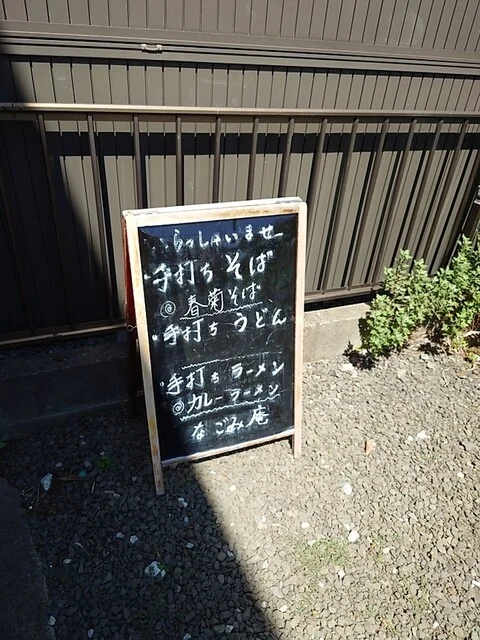 いらっしゃいませ
・手打ち そば
◎春菊そば
・手打ち うどん
・手打ち ラーメン
◎カレーラーメン
なごみ庵